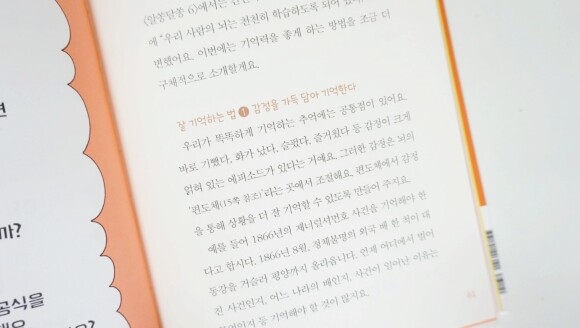 면
까?
공식을
(알쏭달쏭 6)에서는
에 "우리 사람의 뇌는 천천히 학습하도록 되어 있
변했어요. 이번에는 기억력을 좋게 하는 방법을 조금 더
구체적으로 소개할게요.
잘 기억하는 법 1 감정을 가득 담아 기억한다
우리가 똑똑하게 기억하는 추억에는 공통점이 있어요.
바로 기뻤다, 화가 났다, 슬펐다, 즐거웠다 등 감정이 크게
얽혀 있는 에피소드가 있다는 거예요. 그러한 감정은 뇌의
'편도체(15쪽 참조)'라는 곳에서 조절해요. 편도체에서 감정
을 통해 상황을 더 잘 기억할 수 있도록 만들어 주지요.
예를 들어 1866년의 제너럴셔먼호 사건을 기억해야 한
다고 합시다. 1866년 8월, 정체불명의 외국 배 한 척이 대
동강을 거슬러 평양까지 올라옵니다. 언제 어디에서 벌어
진 사건인지, 어느 나라의 배인지, 사건이 일어난 이유는
무엇인지 등 기억해야 할 것이 많지요.